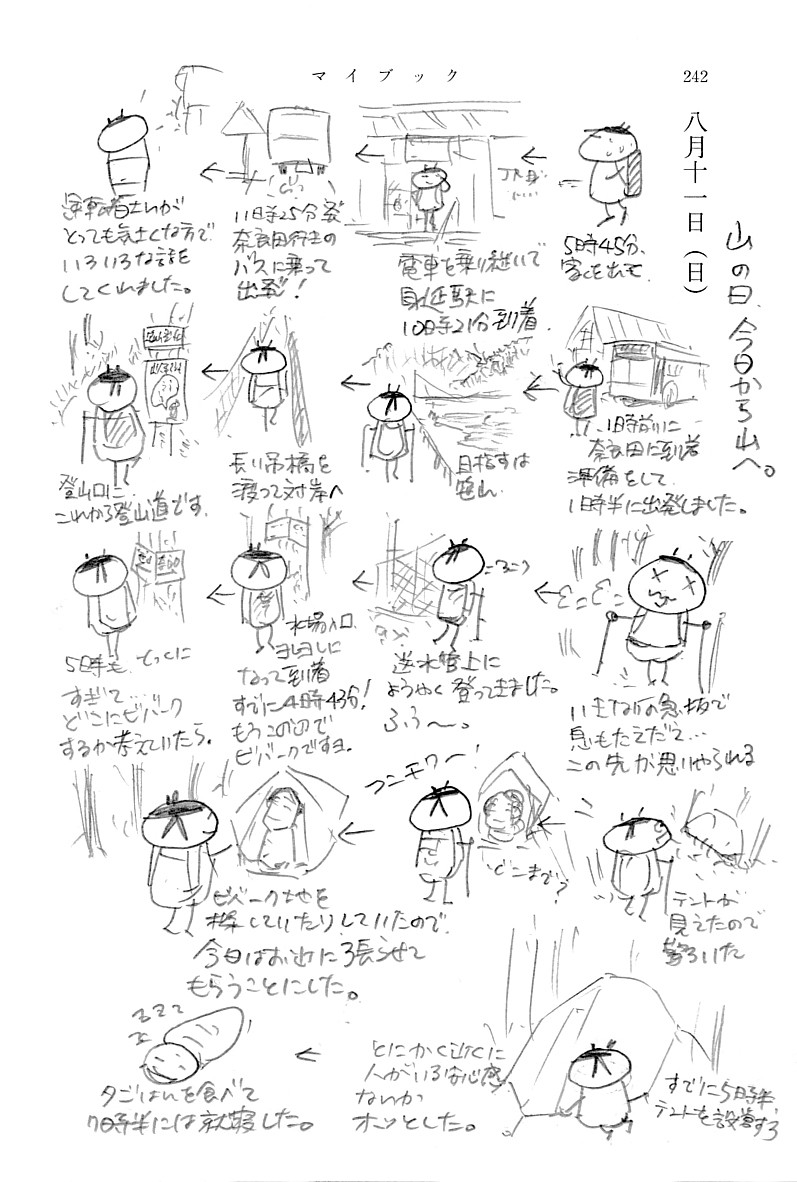 マイブック
242
八月十一日(日)
山の日、今日から山へ。
5時45分、
家を出て
電車を乗り継いで
身延駅に
10時21分到着。
11時25分発
奈良田行きの
バスに乗って
出発!
運転手さんが
とっても気さくな方で
いろいろな話を
してくれました。
1時前に
奈良田に到着
準備をして
1時半に出発しました。
目指すは
笹山
長い吊橋を
渡って対岸へ
登山口に
これから登山道です。
いきなりの急坂で
息もたえだえ…
この先が思いやられる
送水管上に
ようやく登ってきました。
ふう〜。
水場入口
ヨレヨレに
なって到着
すでに4時43分!
もうこの辺で
ビバークですヨ。
5時も とっくに
すぎて…
どこにビバーク
するか考えていたら。
テントが
見えたので
驚いた
コンチワー!
どこまで?
ビバーク地を
探していたりしていたので
今日はお近くに張らせて
もらうことにした。
すでに5時半、
テントを設営する
とにかく近くに
人がいる安心感
ないか
ホッとした。
zzzz
夕ごはんを食べて
7時半には就寝した。